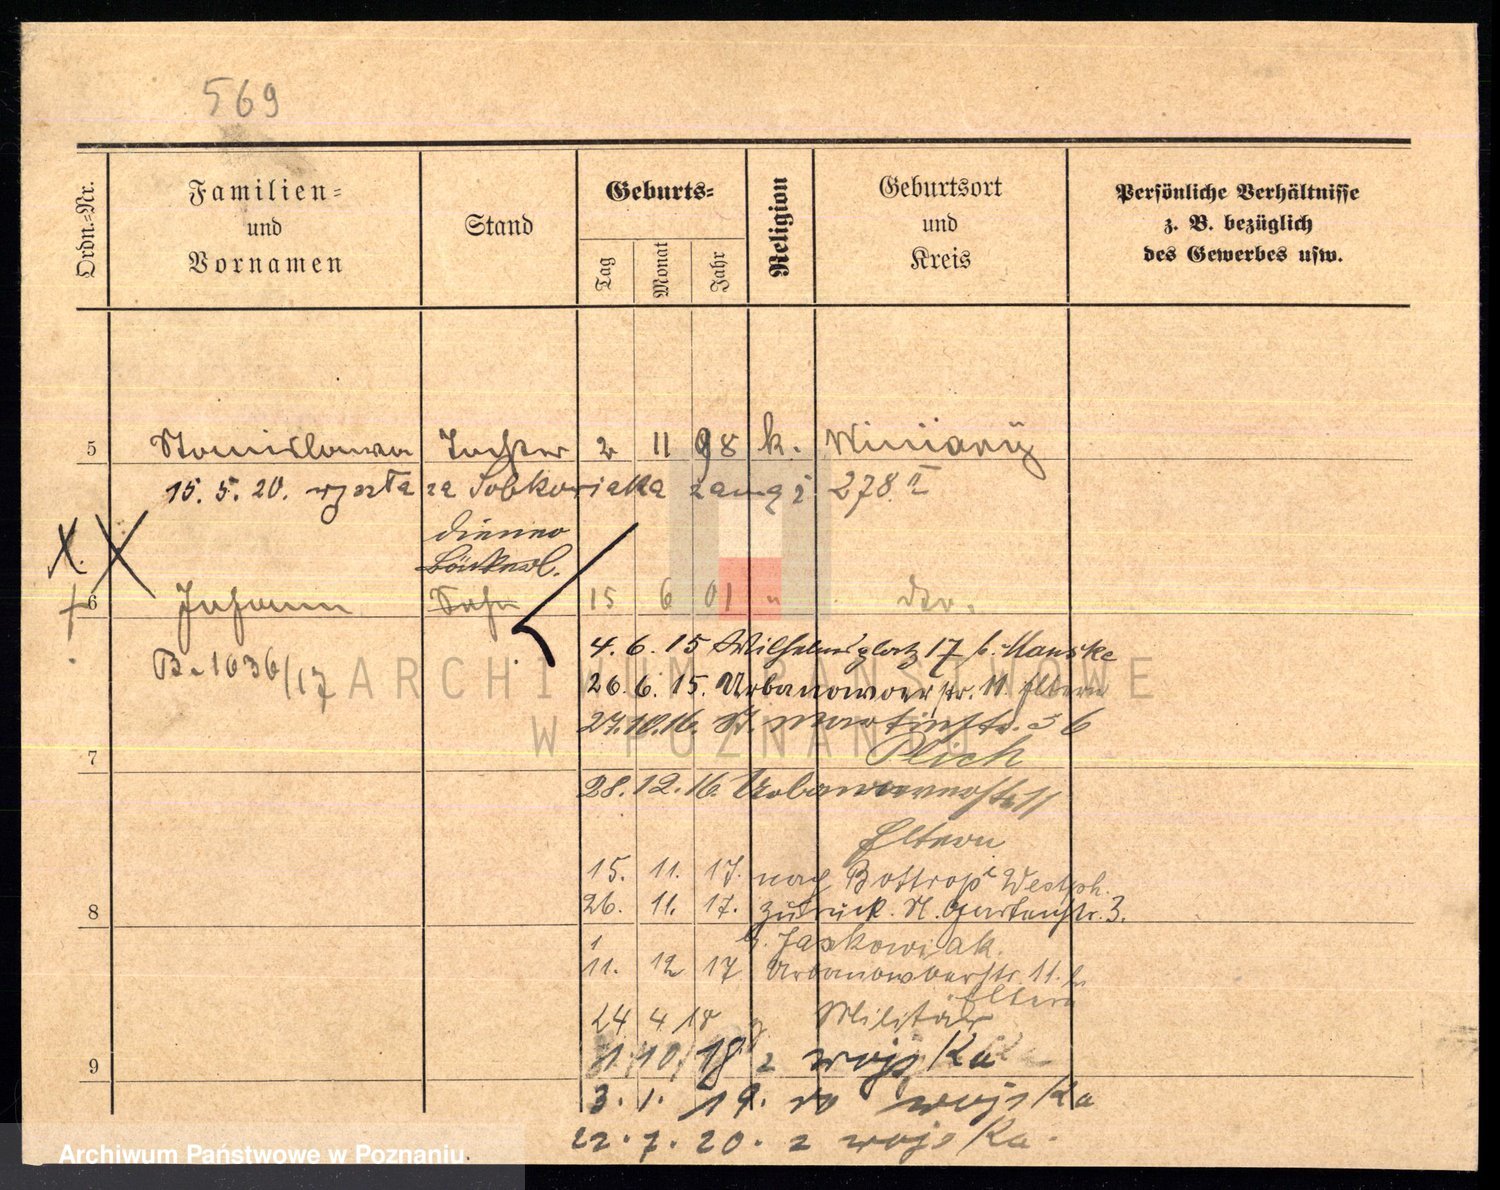 569
Ordn.-Nr.
Familien-
und
Vornamen
Stand
Geburts-
Tag
Monat
Jahr
Religion
Geburtsort
und
Kreis
Persönliche Verhältnisse
z. B. bezüglich
des Gewerbes usw.
5 Stanislawa Tochter 2 11 98 k. Winiary
15. 5. 20. wzięta za Sobkowiaka zamąż 278.
X. X
6 Johann Sohn 15 6 01 " do.
B. 1636/17
4. 6. 15 Wilhelmsplatz 17 b. Manske
26. 6. 15. Urbanowoerstr. 11. Eltern
27. 10. 16. St. Martinstr. 56
Plich
7
28. 12. 16. Urbanowoerstr 11
Eltern
15. 11. 17. nach Bottrop Westph.
8
26. 11. 17. zurück. N. Gartenstr. 3.
b. Jaskowiak.
11. 12 17 Urbanowoerstr. 11. b.
Eltern
24 4 18 Militär
9
1 10 18 z wojska
3. 1. 19. wojska
22. 7. 20. z wojska
ARCHIWUM PAŃSTWOWE
W POZNANIU
Archiwum Państwowe w Poznaniu